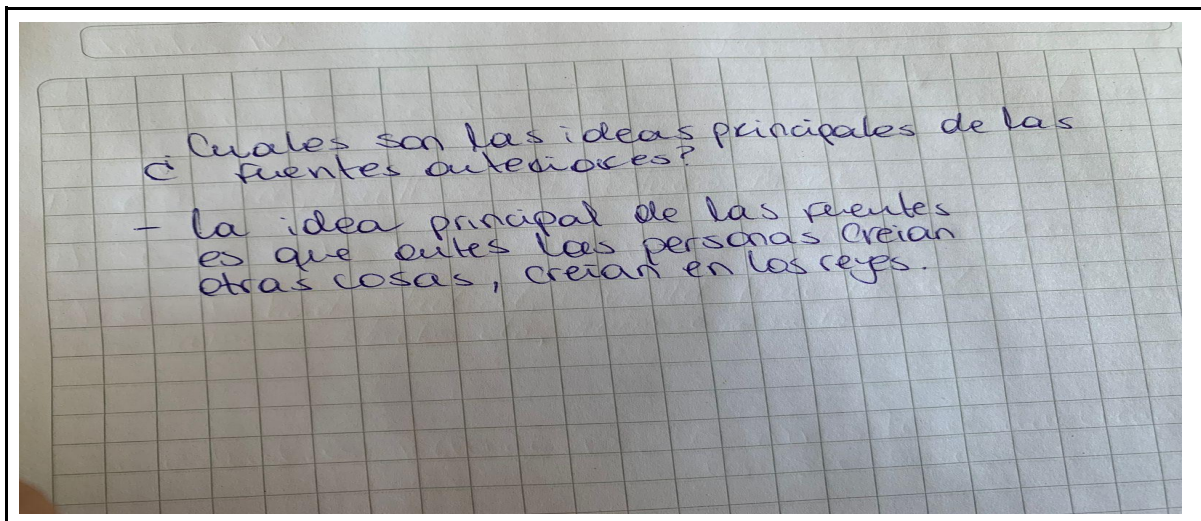 ¿Cuales son las ideas principales de las
fuentes anteriores?
- La idea principal de las fuentes
es que antes las personas creian
otras cosas, creían en los reyes.